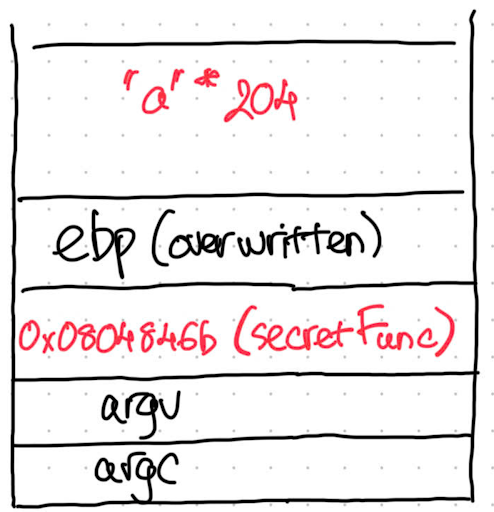 "a" * 204
ebp (overwritten)
0x0804846b (secretFunc)
argv
argc